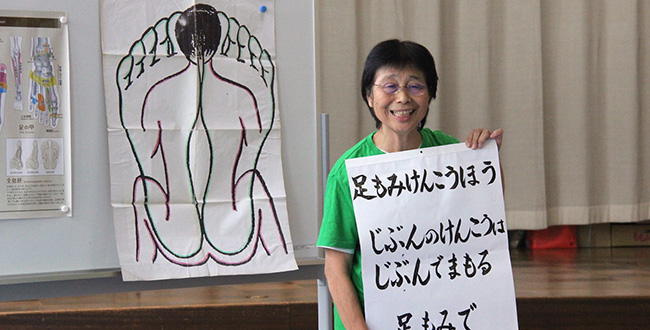 足の甲
足もみけんこうほう
じぶんのけんこうは
じぶんでまもる
足もみで